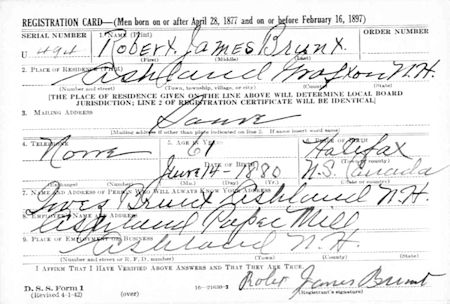 REGISTRATION CARD—(Men born on or after April 28, 1877 and on or before February 16, 1897)
SERIAL NUMBER
1. NAME (Print)
ORDER NUMBER
U 494
Robert James Brunt
(First) (Middle) (Last)
2. PLACE OF RESIDENCE (Print)
Ashland Grafton N.H.
(Number and street) (Town, township, village, or city) (County) (State)
[THE PLACE OF RESIDENCE GIVEN ON THE LINE ABOVE WILL DETERMINE LOCAL BOARD
JURISDICTION; LINE 2 OF REGISTRATION CERTIFICATE WILL BE IDENTICAL]
3. MAILING ADDRESS
Same
[Mailing address if other than place indicated on line 2. If same insert word same]
4. TELEPHONE
5. AGE IN YEARS
6. PLACE OF BIRTH
None
61
Halifax
DATE OF BIRTH
(Town or county)
June 14-1880
N.S. Canada
7. NAME AND ADDRESS OF PERSON WHO WILL ALWAYS KNOW YOUR ADDRESS
Brunt Ashland N.H.
8. EMPLOYER'S NAME AND ADDRESS
Ashland Paper Mill
9. PLACE OF EMPLOYMENT OR BUSINESS
Ashland N.H.
(Number and street or R. F. D. number) (Town) (County) (State)
I AFFIRM THAT I HAVE VERIFIED ABOVE ANSWERS AND THAT THEY ARE TRUE.
Robert James Brunt
D. S. S. Form 1
(Revised 4-1-42) (over)
16—21630-2
(Registrant's signature)